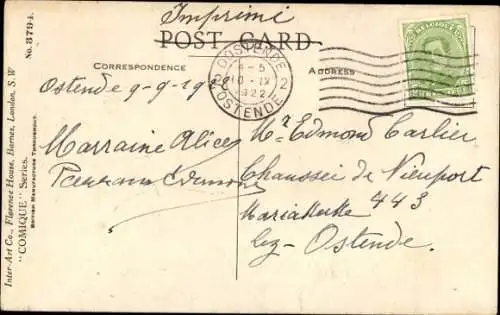 Imprimé
POST CARD
CORRESPONDENCE
ADDRESS
Ostende 9-9-192
OOSTENDE
2 2
10-IX
1922
OSTENDE
Marraine Alice
Mr Edmond Carlier
Chaussée de Nieuport
443
Mariakerke
lez-Ostende
No. 8794.
Inter-Art Co., Florence House, Barnes, London, S.W
"COMIQUE" Series.
BRITISH MANUFACTURE THROUGHOUT.